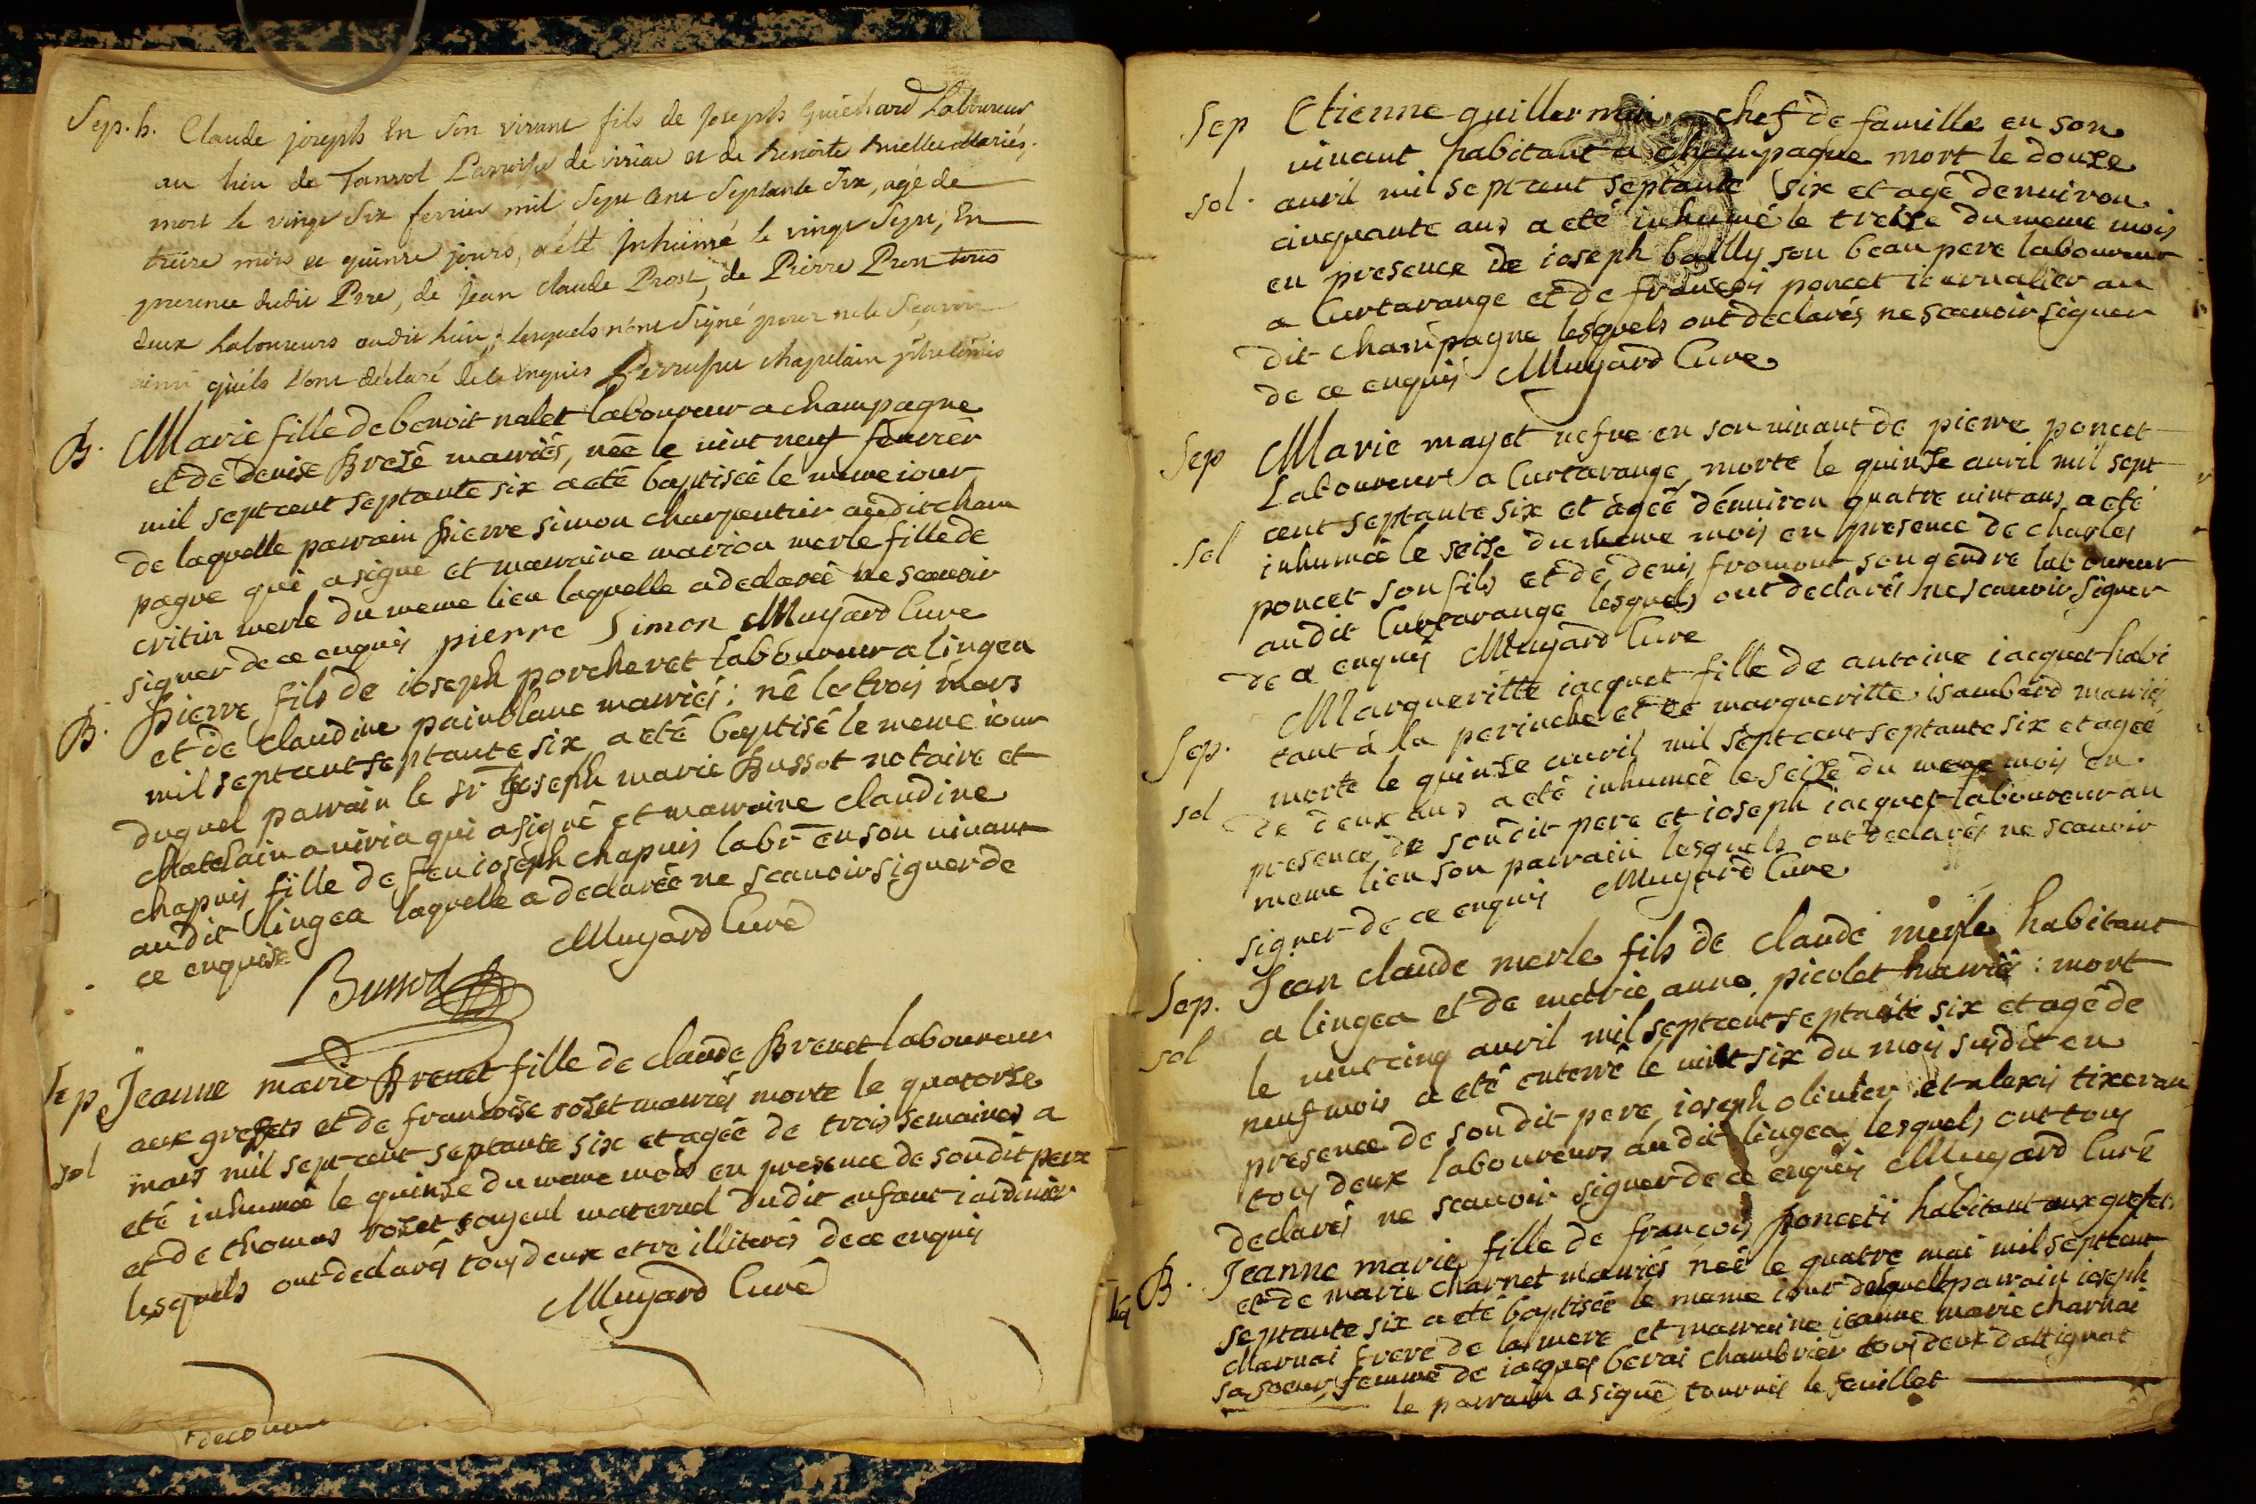 Sep. h. Claude joseph En Son vivant fils de Joseph Guichard Laboureur
au lieu de Tanvol Parroisse de viriac et de Benoite Mariés,
mort le vingt Six fevrier mil Sept Cent Septante Six, agé de
treize mois et quinze jours, a été Inhumé le vingt Sept, En
presence dudit Pere, de Jean Claude Prost, de Pierre Pron tous
deux Laboureurs audit lieu, lesquels n'ont Signé pour ne le Sçavoir
ainsi qu'ils l'ont déclaré de ce enquis chapelain
B. Marie fille de benoit nalet laboureur a champagne
et de denise Bresé mariés, née le vint neuf fevrier
mil septcent septante six a eté baptisée le meme iour
de laquelle parrain pierre simon charpentier audit cham
pagne qui a signé et marraine marion merle fille de
critin merle du meme lieu laquelle a declarée ne scavoir
signer de ce enquis pierre Simon Muyard Cure
B. pierre fils de ioseph porcheret laboureur a lingea
et de claudine painblanc mariés; né le trois mars
mil septcent septante six a eté baptisé le meme iour
duquel parrain le sr Joseph marie Bussot notaire et
chatelain a viria qui a signé et marraine claudine
chapuis fille de feu ioseph chapuis labr en son vivant
audit lingea laquelle a declarée ne scavoir signer de
ce enquise Muyard Curé
Bussod
Sep Jeanne marie Brevet fille de claude Brevet laboureur
aux greffets et de francoise roset mariés morte le quatorse
sol mars mil sept cent septante six et agée de trois semaines a
eté inhumée le quinse du meme mois en presence de son dit pere
et de thomas roset son ayeul maternel dudit enfant iardinier
lesquels ont declarés tous deux etre illiterés de ce enquis
Muyard Curé
Sep Etienne guillermin chef de famille en son
vivant habitant a champagne mort le douze
sol. avril mil septcent septante six et agé denviron
cinquante ans a eté inhumé le treise du meme mois
en presence de ioseph bailly son beau pere laboureur
a Curtarange et de francois poncet iournalier au
dit champagne lesquels ont declarés ne scavoir signer
de ce enquis Muyard Cure
Sep Marie mayet vefve en son vivant de pierre poncet
Laboureur a Curtarange, morte le quinse avril mil sept
cent septante six et agée d'environ quatre vint ans a eté
sol inhumée le seise du meme mois en presence de charles
poncet son fils et de denis fromont son gendre laboureur
audit Curtarange lesquels ont declarés ne scavoir signer
de ce enquis Muyard Cure
Marguerittte iacquet fille de antoine iacquet habi
Sep. tant à la perinche et de margueritte isambard mariés,
morte le quinse avril mil septcent septante six et agée
sol de deux ans a eté inhumée le seise du meme mois en
presence de son dit pere et ioseph iacquet laboureur au
meme lieu son parrain lesquels ont declarés ne scavoir
signer de ce enquis Muyard Cure
Sep. Jean claude merle fils de claude merle habitant
a lingea et de marie anne picolet mariés: mort
sol le vint cinq avril mil septcent septante six et agé de
neuf mois a eté enterré le vint six du mois susdit en
presence de son dit pere ioseph olivier et alexis tixeran
tous deux laboureurs audit lingea, lesquels ont tous
declarés ne scavoir signer de ce enquis Muyard Curé
B. Jeanne marie fille de francois poncet habitant aux grefets
et de marie charnet mariés née le quatre mai mil septcent
septante six a eté baptisée le meme iour de laquelle parrain ioseph
charnai frere de la mere et marraine jeanne marie charnai
sa soeur femme de iacques berai chambrier tous deux d'attignat
le parrain a signé tournés le feuillet